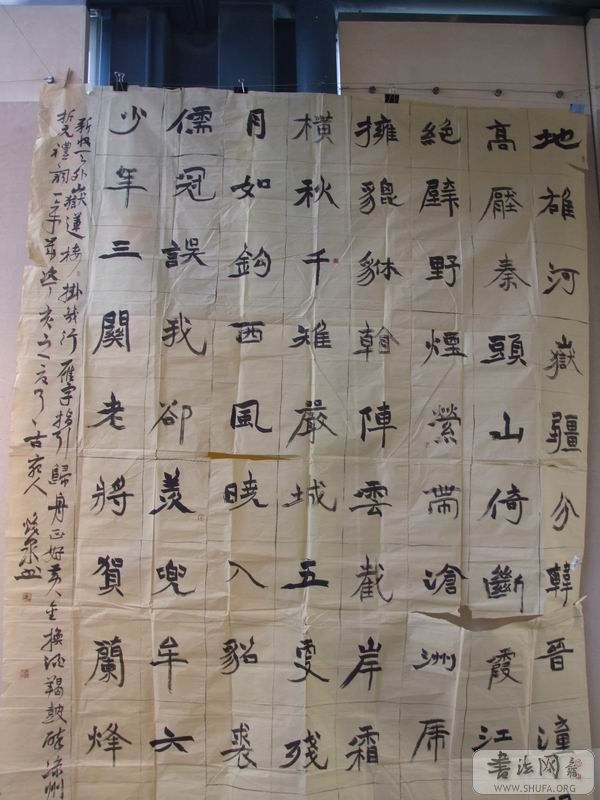 地雄河嶽疆分韓晉潼
高壓秦頭山倚斷霞江
絕壁野煙縈帶滄洲虎
擁貔貅翰陣雲截岸霜
橫秋千雉嚴城五更殘
月如鈎西風曉入貂裘
儒冠誤我卻羨兜牟六
少年三關老將賀蘭烽
新收天外嶽蓮樓掛幾行雁字指引歸舟正好黃金換酒羯鼓醉涼州
折元禮詞一首
書法网
WWW.SHUFA.ORG